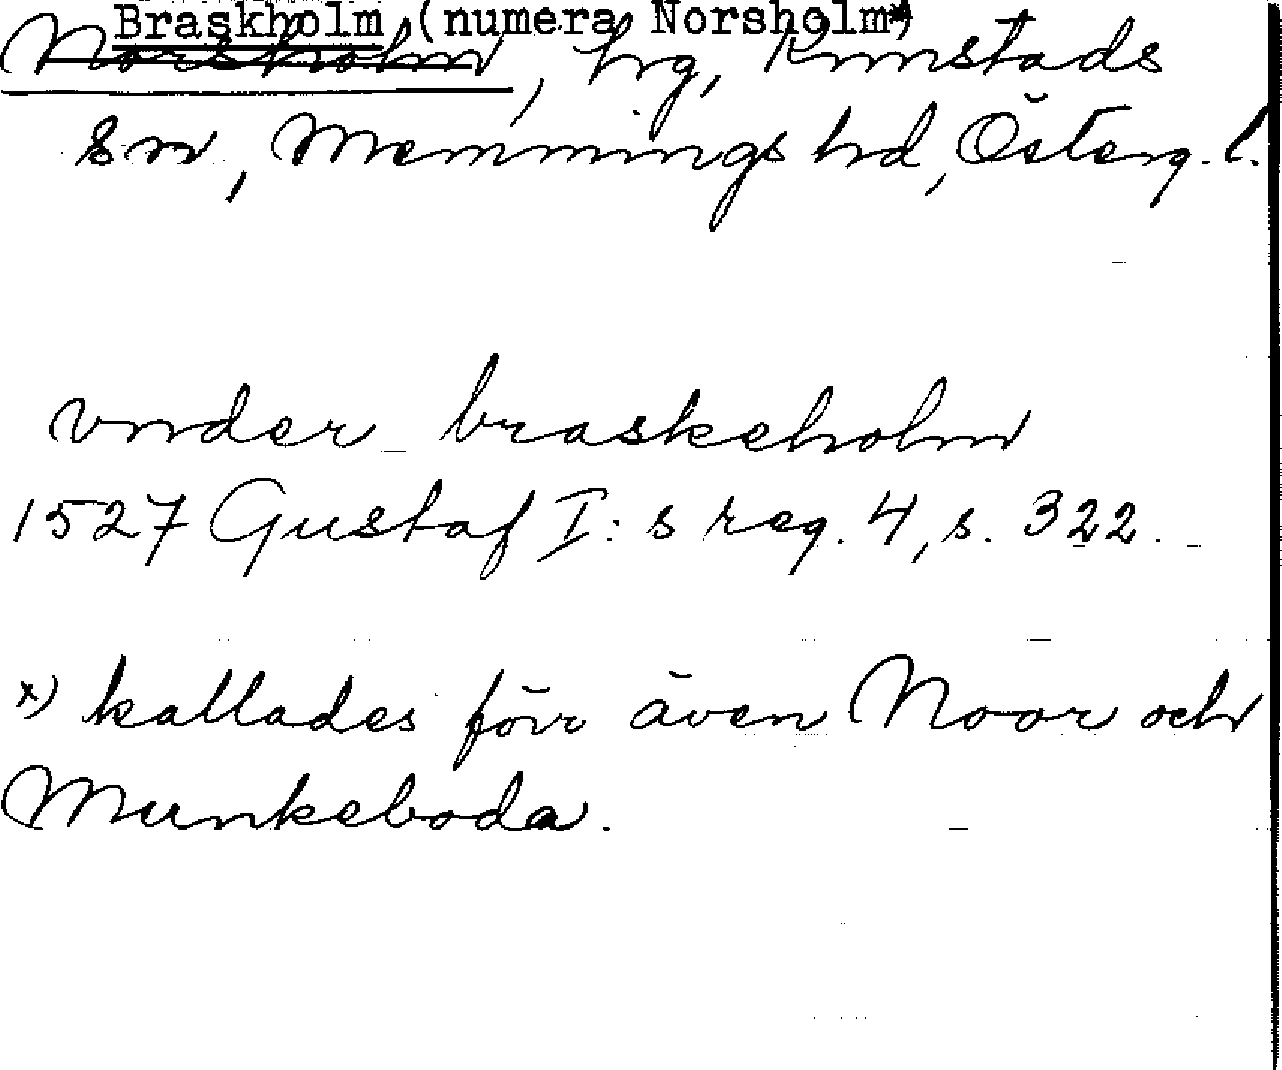 Braskholm (numera Norsholm*)
Norsholm, hrg, Kimstads
sn, Memmings hd, Österg. l.
vnder braskeholm
1527 Gustaf I:s reg. 4, s. 322.
x) kallades förr även Noor och
Munkeboda.